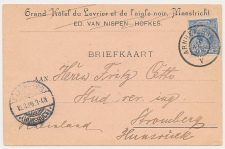 Grand Hôtel du Levrier et de l'aigle noir, Maastricht.
ED. VAN NISPEN-HOFKES.
BRIEFKAART
Aan Heern Fritz Otto
Stud.
Stromberg
Hunsrück